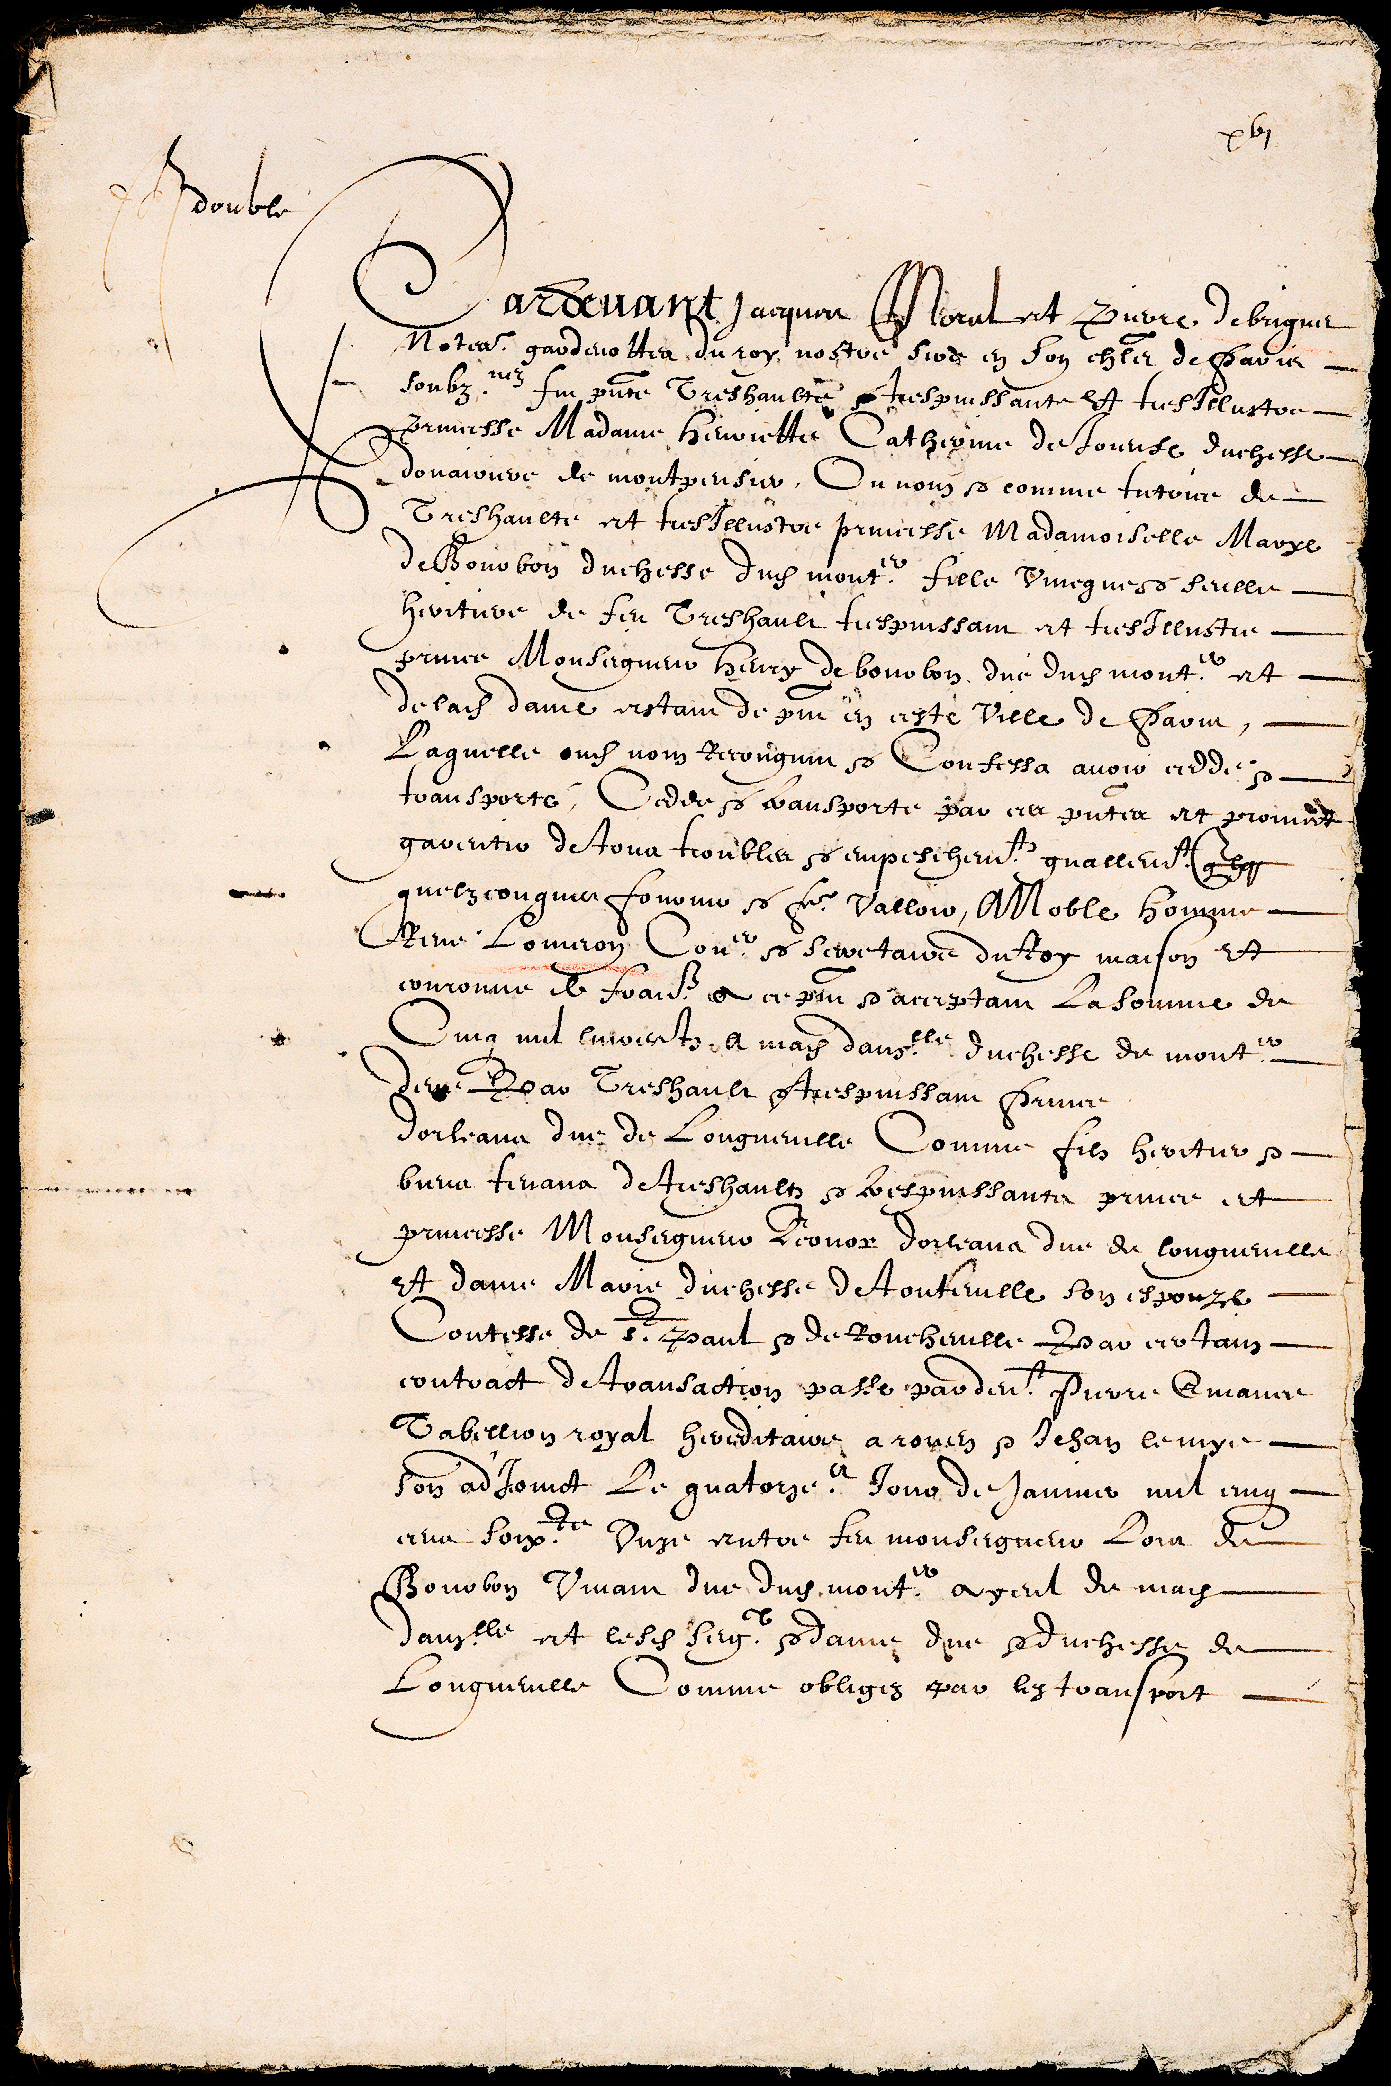 xvj
double
Pardevant Jacques Morel et Pierre de briquet
Notes. gardenottes du roy nostre sire en son chlet de Paris
soubz.nez fut pnte Treshaulte & trespuissante Et tresIllustre
princesse Madame henriette Catherine de Joieuse duchesse
douairiere de montpensier, Ou nom & comme tutrice de
Treshaulte et tresIllustre princesse Madamoiselle Marye
de Bourbon duchesse dud mont.er fille Unicque & seulle
heritiere de feu Treshault trespuissant et tresIllustre
prince Monseigneur henry de bourbon duc dud mont.er et
de lad dame estant de pnt en ceste Ville de Paris,
Laquelle oud nom Recongnut & Confessa avoir ceddé &
transporté, Cedde & transporte par ces pntes et promect
garentir de tous troubles & empeschemt. gnallemt.
quelzconques fournir & fe. Valloir, A Noble homme
Rene Lomeron Coner. & secretaire du Roy maison Et
couronne de franc. a ce pnt & acceptant La somme de
Cinq mil livres tz. a mad damlle duchesse de mont.er
deue Par Treshault & trespuissant Prince
dorleans duc de Longueville Comme filz heritier &
biens tenans de treshaultz & trespuissants prince et
princesse Monseigneur Leonor dorleans duc de longueville
Et dame Marie duchesse de touteville son espouze
Contesse de St. Paul & de Roucheville Par certain
contract de transaction passe pardevt. Pierre
Tabellion royal hereditaire a rouen & Jehan lemye
son adJoinct Le quatorze.e Jour de Janvier mil cinq
cens soix.te Unze entre feu monseigneur Lois de
Bourbon Vivant duc dud mont.er ayeul de mad
damlle et lesd seigr. & dame duc & duchesse de
Longueville Comme obligez par led transport